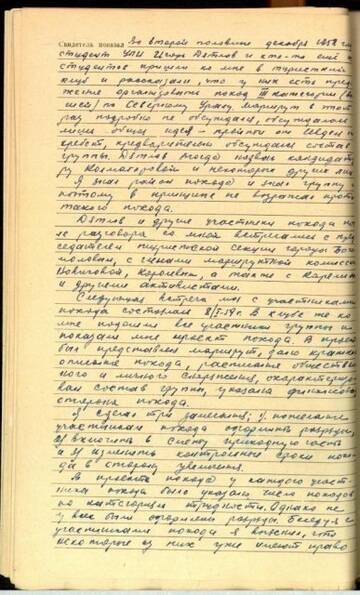 Свидетель показал: Во второй половине декабря 1958 г.
студент УПИ Игорь Дятлов и кто-то ещё
студентов пришли ко мне в туристский
клуб и рассказали, что у них есть
организовать поход III категории
по Северному Уралу. Маршрут в этот
раз подробно не обсуждали, обсуждалась
лишь общая идея - пройти от Ивделя
хребет, предварительно обсуждали состав
группы. Дятлов тогда назвал кандидату
ру Колмогоровой и некоторые других
Я знал район похода и знал группу
поэтому в принципе не возражал против
такого похода.
Дятлов и другие участники похода
разговора со мной встретились с
седателем туристской секции
с членами маршрутной комиссии
Новиковой, Королевым, а также с
и другими активистами.
Следующая встреча моя с участниками
похода состоялась 8/I-59г. В клубе же ко
мне подошли все участники группы и
показали мне проект похода. В проекте
был представлен маршрут, дано краткое
описание похода, расписание обществен
ного и личного снаряжения, охарактеризо
ван состав группы, указана финансовая
сторона похода.
Я сделал три замечания: 1/
участникам похода оформить разряды,
2/ включить в смету приходную часть
и 3/ изменить контрольные сроки похо
да в сторону увеличения.
В проекте похода у каждого участ
ника похода было указано число походов
по категориям трудности. Однако не
у всех были оформлены разряды. Беседуя с
участниками похода я выяснил, что
некоторые из них уже имеют право